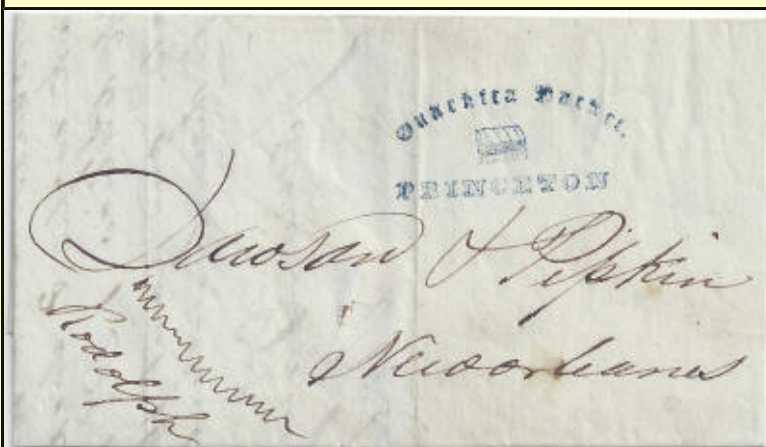 Ouachita Packet.
PRINCETON
Dawson & Pipkin
Neworleans
Rodolph